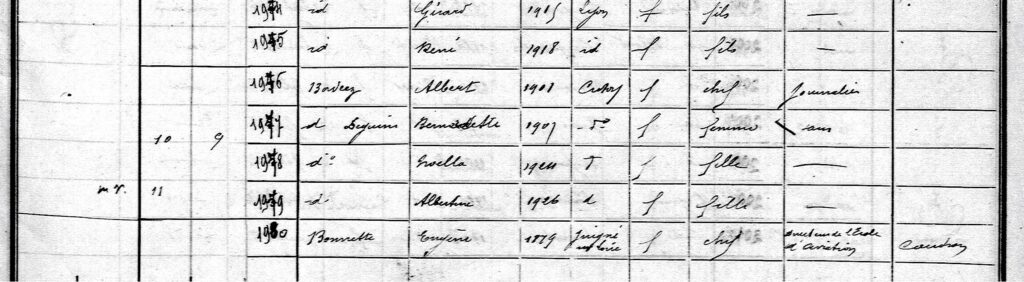 1974 id Gérard 1915 Lyon f fils —
1975 id René 1918 id f fils —
1976 Albert 1901 f chef journalier
1977 d Seguin Bernadette 1907 - d° f femme sans
10 9
1978 d° 1924 f fille —
m r. 11
1979 d° Albertine 1926 d f fille —
1980 Bonnette Eugène 1879 Juigné f chef Directeur de l'Ecole Caudron
sur Loire d'aviation